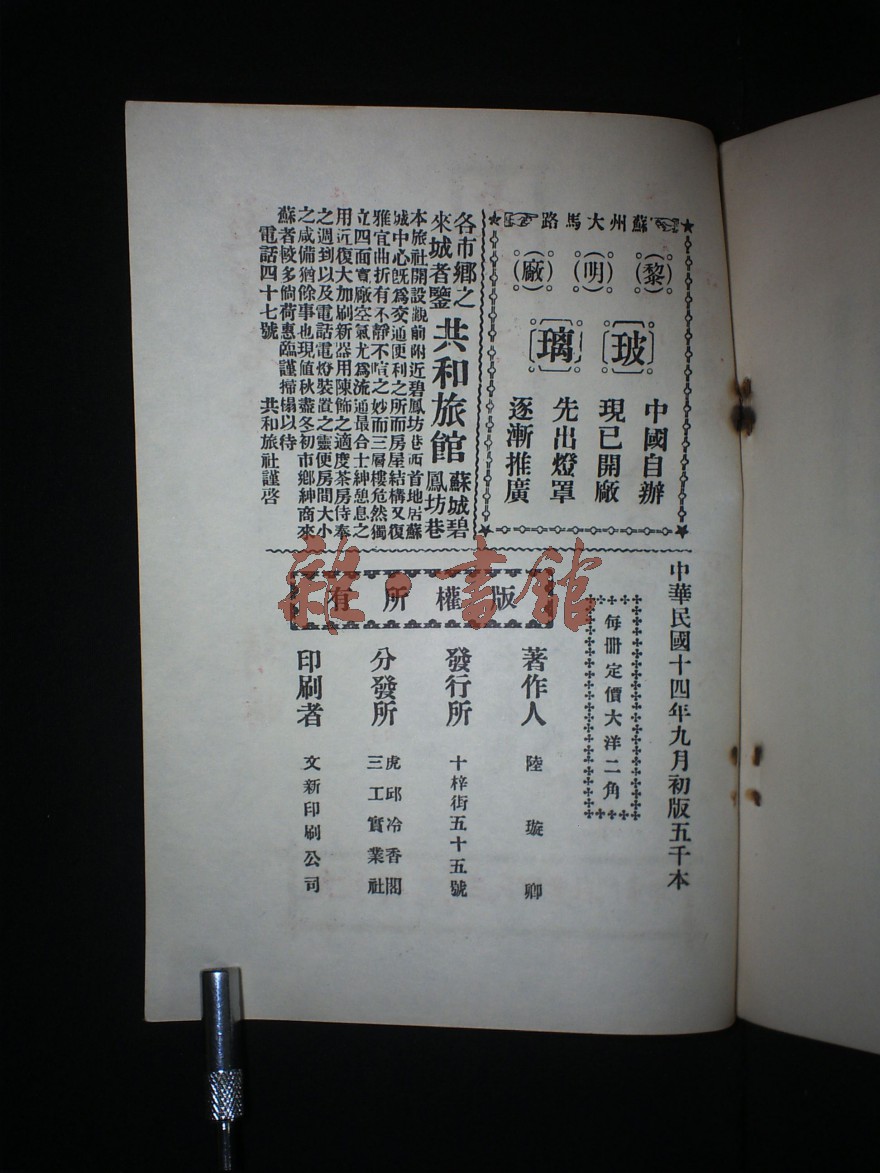 蘇州大馬路
(黎)(明)(廠)
玻璃
中國自辦
現已開廠
先出燈罩
逐漸推廣
各市鄉之
來城者鑒
共和旅館
蘇城碧
鳳坊巷
本旅社開設觀前附近碧鳳坊巷西首地居蘇
城中心旣爲交通便利之所而房屋結構又復
雅宜曲折有不靜不喧之妙而三層樓危然獨
立四面寬廠空氣尤爲流通最合士紳憩息之
用近復大加刷新器用陳飾之適度茶房侍奉
之週到以及電話電燈裝置之靈便房間大小
之咸備猶餘事也現値秋盡冬初市鄉紳商來
蘇者較多倘荷惠臨謹掃榻以待
電話四十七號
共和旅社謹啓
中華民國十四年九月初版五千本
每冊定價大洋二角
版權所有
著作人 陸璇卿
發行所 十梓街五十五號
分發所 虎邱冷香閣
三工實業社
印刷者 文新印刷公司
雜·書館